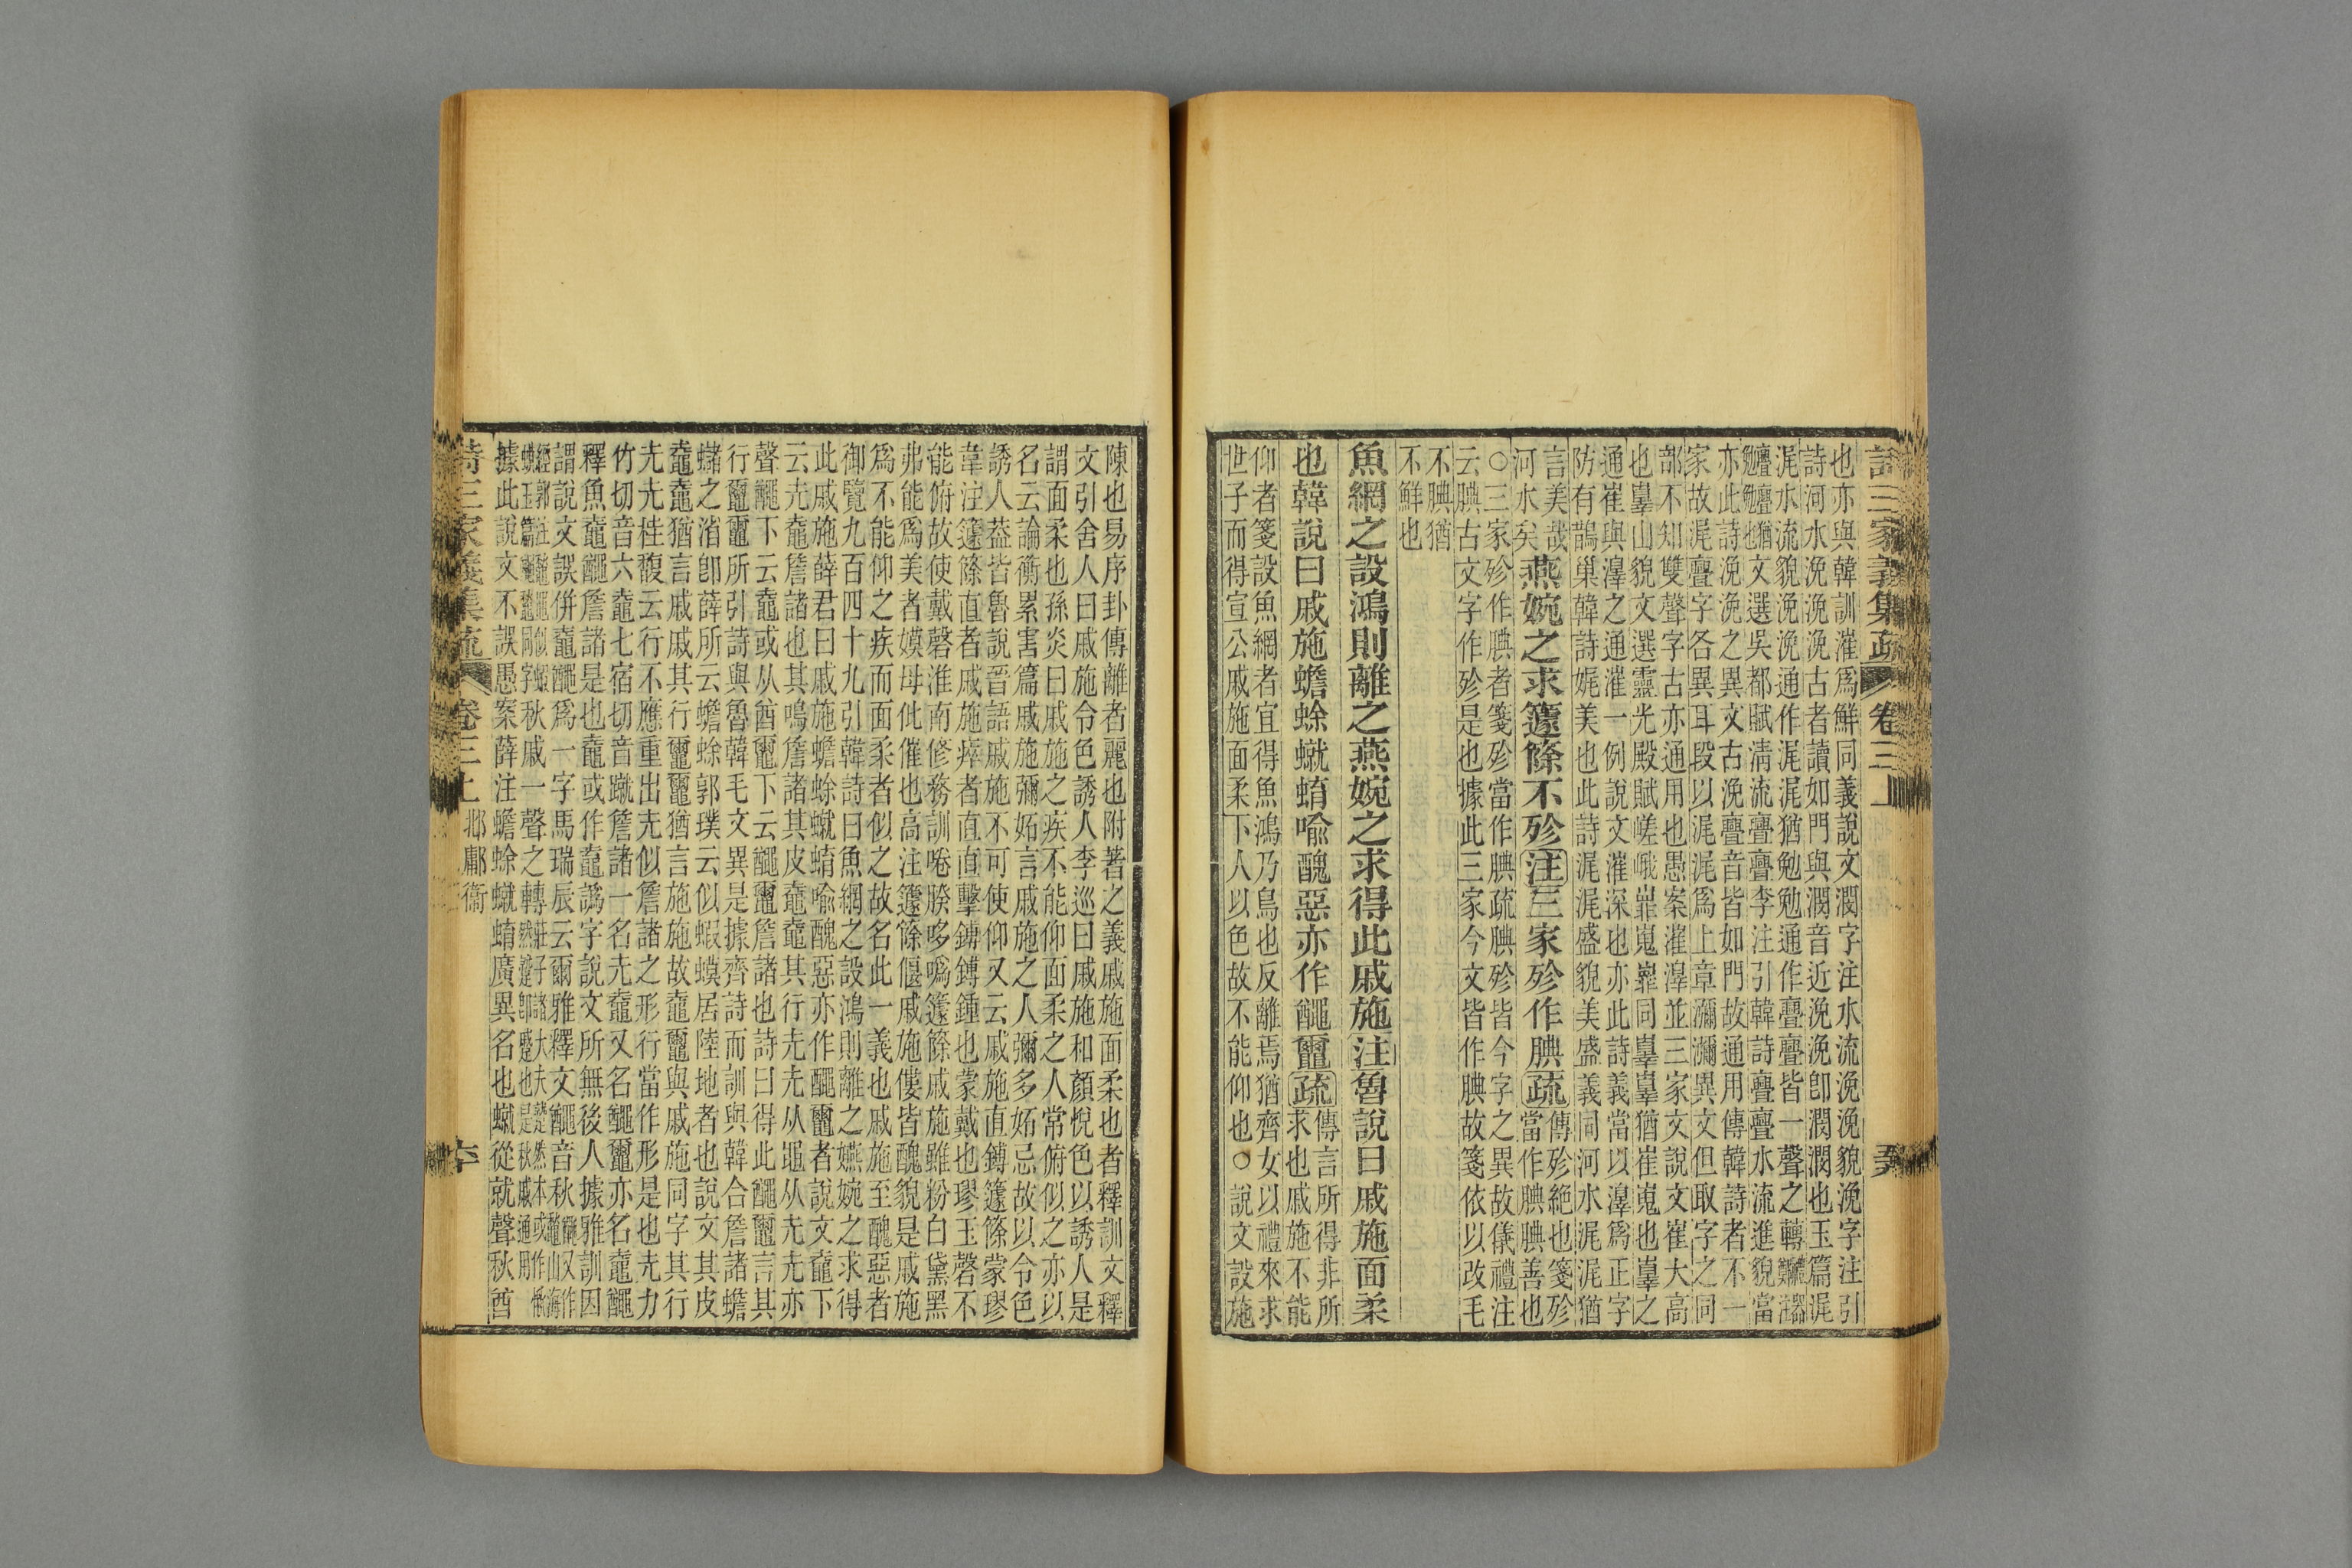 詩三家義集疏 卷三上
也亦與韓訓漼爲鮮同義說文潤字注水流浼浼貌浼字注引
詩河水浼浼古者讀如門與潤音近浼浼卽潤潤也玉篇浘
浘水流貌浼浼通作浘浘猶勉勉通作亹亹皆一聲之轉
亹亹猶文選吳都賦淸流亹亹李注引韓詩亹亹水流進貌當
勉勉也
亦此詩浼浼之異文古浼亹音皆如門故通用傳韓詩者不一
家故浘亹字各異耳段以浘浘爲上章瀰瀰異文但取字之同
部不知雙聲字古亦通用也愚案漼湶並三家文說文崔大高
也嶵山貌文選靈光殿賦嵯峨嶵嵬嶵同嶵嶵猶崔嵬也嶵之
通崔與湶之通漼一例說文漼深也亦此詩義當以湶爲正字
防有鵲巢韓詩娓美也此詩浘浘盛貌美盛義同河水浘浘猶
言美哉
河水矣
燕婉之求籧篨不殄注三家殄作腆疏
傳殄絶也箋殄
當作腆腆善也
○三家殄作腆者箋殄當作腆疏腆殄皆今字之異故儀禮注
云腆古文字作殄是也據此三家今文皆作腆故箋依以改毛
不腆猶
不鮮也
魚網之設鴻則離之燕婉之求得此戚施注魯說曰戚施面柔
也韓說曰戚施蟾蜍蝛蜟喩醜惡亦作𪓰𪓿疏
傳言所得非所
求也戚施不能
仰者箋設魚網者宜得魚鴻乃鳥也反離焉猶齊女以禮來求
世子而得宣公戚施面柔下人以色故不能仰也○說文設施
陳也易序卦傳離者麗也附著之義戚施面柔也者釋訓文釋
文引舍人曰戚施令色誘人李巡曰戚施和顏悅色以誘人是
謂面柔也孫炎曰戚施之疾不能仰面柔之人常俯似之亦以
名云論衡累害篇戚施彌妬言戚施之人彌多妬忌故以令色
誘人葢皆魯說晉語戚施不可使仰又云戚施直鎛籧篨蒙璆
韋注籧篨直者戚施瘁者直直擊鎛鎛鍾也蒙戴也璆玉磬不
能俯故使戴磬淮南修務訓啳䐤哆噅籧篨戚施雖粉白黛黑
弗能爲美者嫫母仳倠也高注籧篨偃戚施僂皆醜貌是戚施
爲不能仰之疾而面柔者似之故名此一義也戚施至醜惡者
御覽九百四十九引韓詩曰魚網之設鴻則離之嬿婉之求得
此戚施薛君曰戚施蟾蜍蝛蜟喩醜惡亦作𪓰𪓿者說文𪓰下
云圥𪓰詹諸也其鳴詹諸其皮𪓰𪓰其行圥圥从黽从圥圥亦
聲𪓿下云𪓰或从酋𪓿下云𪓿𪓿詹諸也詩曰得此𪓿𪓿言其
行𪓿𪓿所引詩與魯韓毛文異是據齊詩而訓與韓合詹諸蟾
蠩之渻卽薛所云蟾蜍郭璞云似蝦蟆居陸地者也說文其皮
𪓰𪓰猶言戚戚其行𪓿𪓿猶言施施故𪓰𪓿與戚施同字其行
圥圥桂馥云行不應重出圥似詹諸之形行當作形是也圥力
竹切音六𪓰七宿切音蹴詹諸一名圥𪓰又名𪓿𪓿亦名𪓰𪓿
釋魚𪓰𪓿詹諸是也𪓰或作𪓰譌字說文所無後人據雅訓因
謂說文誤併𪓰𪓿爲一字馬瑞辰云爾雅釋文𪓿音秋
據此說文不誤愚案薛注蟾蜍蝛蜟廣異名也蝛從就聲秋酋
詩三家義集疏 卷三上 邶鄘衞